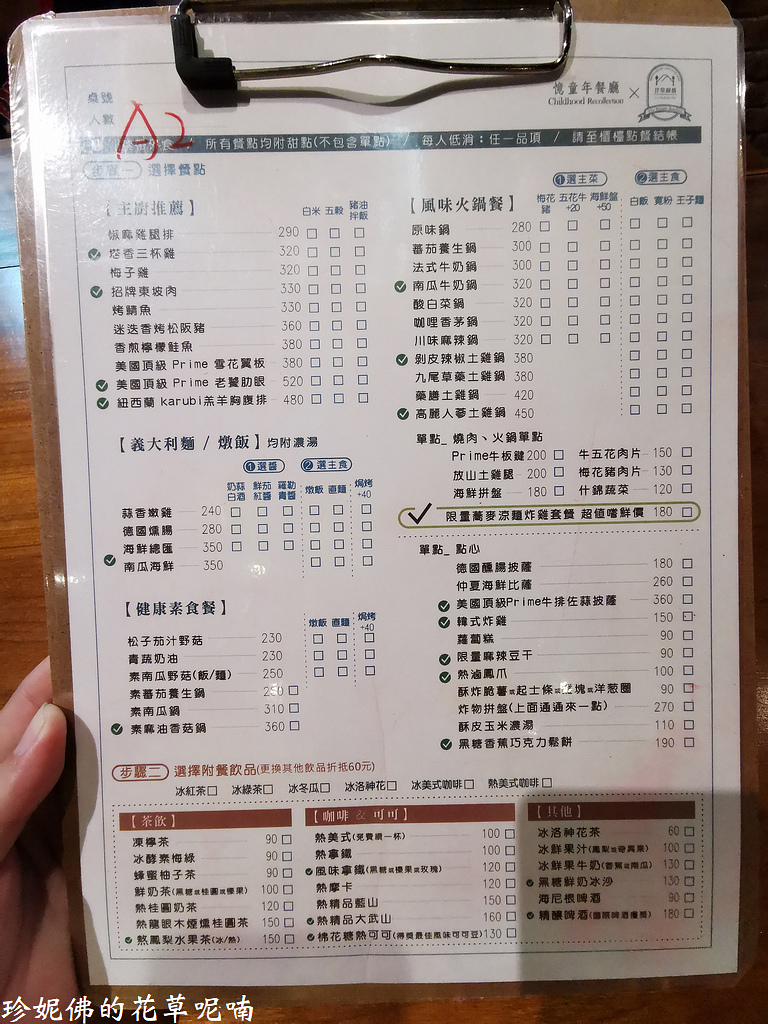 桌號
人數
A2
憶童年餐廳
Childhood Recollection
×
所有餐點均附甜點(不包含單點) / 每人低消：任一品項 / 請至櫃檯點餐結帳
步驟一 選擇餐點
【主廚推薦】 白米 五穀 豬油拌飯
椒麻雞腿排 290
塔香三杯雞 320
梅子雞 320
招牌東坡肉 330
烤鯖魚 330
迷迭香烤松阪豬 360
香煎檸檬鮭魚 380
美國頂級 Prime 雪花翼板 380
美國頂級 Prime 老饕肋眼 520
紐西蘭 karubi羔羊胸腹排 480
【義大利麵 / 燉飯】均附濃湯
①選醬 ②選主食
奶蒜白酒 鮮茄紅醬 羅勒青醬 燉飯 直麵 焗烤+40
蒜香嫩雞 240
德國燻腸 280
海鮮總匯 350
南瓜海鮮 350
【健康素食餐】 燉飯 直麵 焗烤+40
松子茄汁野菇 230
青蔬奶油 230
素南瓜野菇(飯/麵) 250
素蕃茄養生鍋 250
素南瓜鍋 310
素麻油香菇鍋 360
【風味火鍋餐】
①選主菜 ②選主食
梅花豬 五花牛+20 海鮮盤+50 白飯 寬粉 王子麵
原味鍋 280
蕃茄養生鍋 300
法式牛奶鍋 300
南瓜牛奶鍋 320
酸白菜鍋 320
咖哩香茅鍋 320
川味麻辣鍋 320
剝皮辣椒土雞鍋 380
九尾草藥土雞鍋 380
藥膳土雞鍋 420
高麗人蔘土雞鍋 450
單點_ 燒肉、火鍋單點
Prime牛板鍵 200 牛五花肉片 150
放山土雞腿 200 梅花豬肉片 130
海鮮拼盤 180 什錦蔬菜 120
限量蕎麥涼麵炸雞套餐 超值嚐鮮價 180
單點_ 點心
德國醺腸披薩 180
仲夏海鮮比薩 260
美國頂級Prime牛排佐蒜披薩 360
韓式炸雞 150
蘿蔔糕 90
限量麻辣豆干 90
熱滷鳳爪 100
酥炸脆薯或起士條或 塊或洋蔥圈 90
炸物拼盤(上面通通來一點) 270
酥皮玉米濃湯 110
黑糖香蕉巧克力鬆餅 190
步驟二 選擇附餐飲品(更換其他飲品折抵60元)
冰紅茶 冰綠茶 冰冬瓜 冰洛神花 冰美式咖啡 熱美式咖啡
【茶飲】
凍檸茶 90
冰酵素梅綠 90
蜂蜜柚子茶 90
鮮奶茶(黑糖或桂圓或榛果) 100
熱桂圓奶茶 120
熱龍眼木煙燻桂圓茶 150
熬鳳梨水果茶(冰/熱) 150
【咖啡 & 可可】
熱美式(免費續一杯) 100
熱拿鐵 100
風味拿鐵(黑糖或榛果或玫瑰) 120
熱摩卡 120
熱精品藍山 150
熱精品大武山 160
棉花糖熱可可(得獎最佳風味可可豆) 130
【其他】
冰洛神花茶 60
冰鮮果汁(鳳梨或奇異果) 100
冰鮮果牛奶(香蕉或南瓜) 130
黑糖鮮奶冰沙 130
海尼根啤酒 90
精釀啤酒(國際啤酒獲獎) 180
珍妮佛的花草呢喃